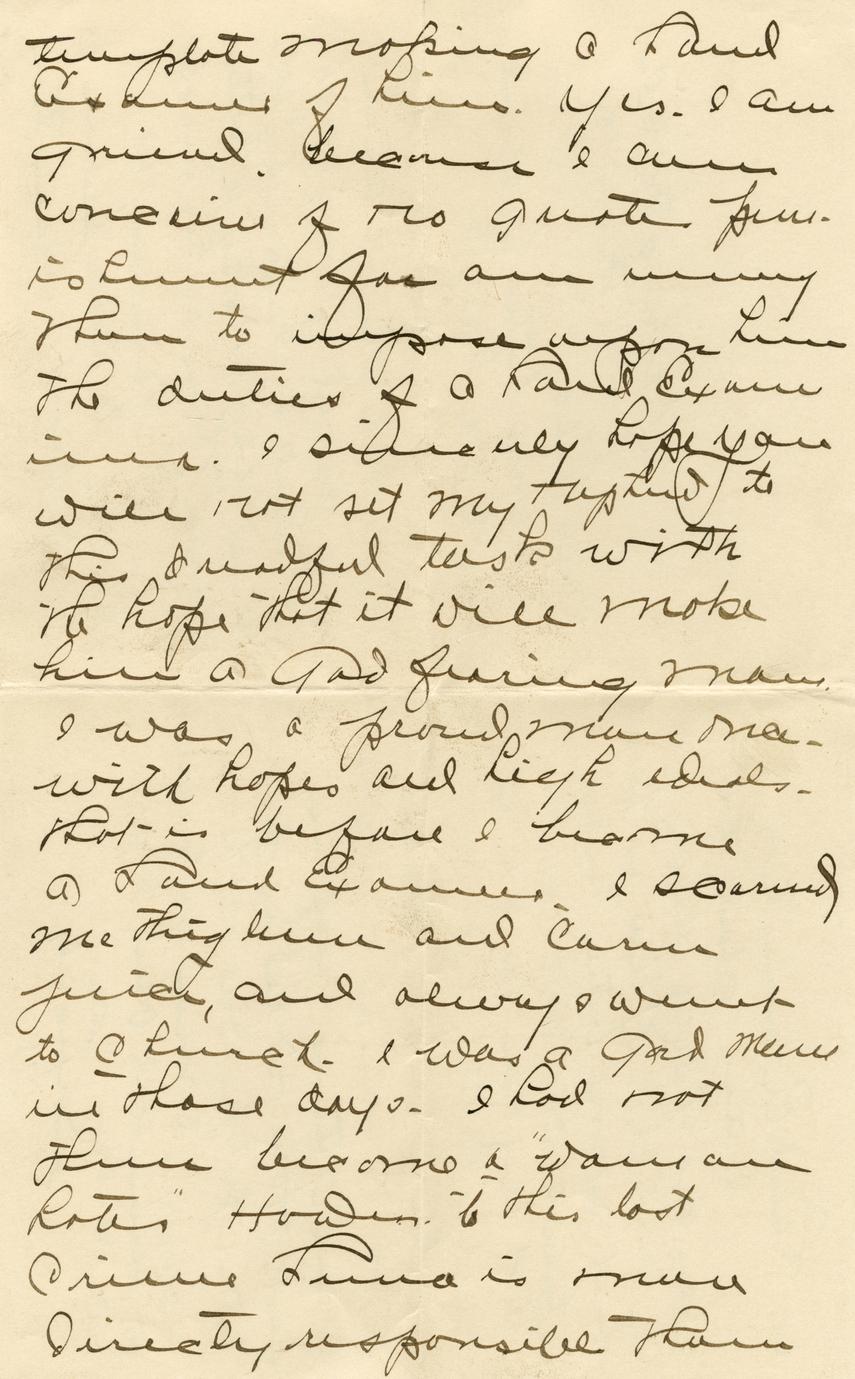 template making a Land
Examiner of him. Yes. I am
grieved. because I can
conceive of no greater pun-
ishment for an enemy
than to impose upon him
the duties of a Land Exam
iner. I sincerely hope you
will not set my to
this dreadful task with
the hope that it will make
him a God fearing man.
I was a proud man once-
with hopes and high ideals-
that is before I became
a Land Examiner. I scorned
me thighum and Corn
juice, and always went
to Church. I was a God man
in those days. I had not
then become a "woman
hater" Howden. to this last
Crime Luna is more
directly responsible than